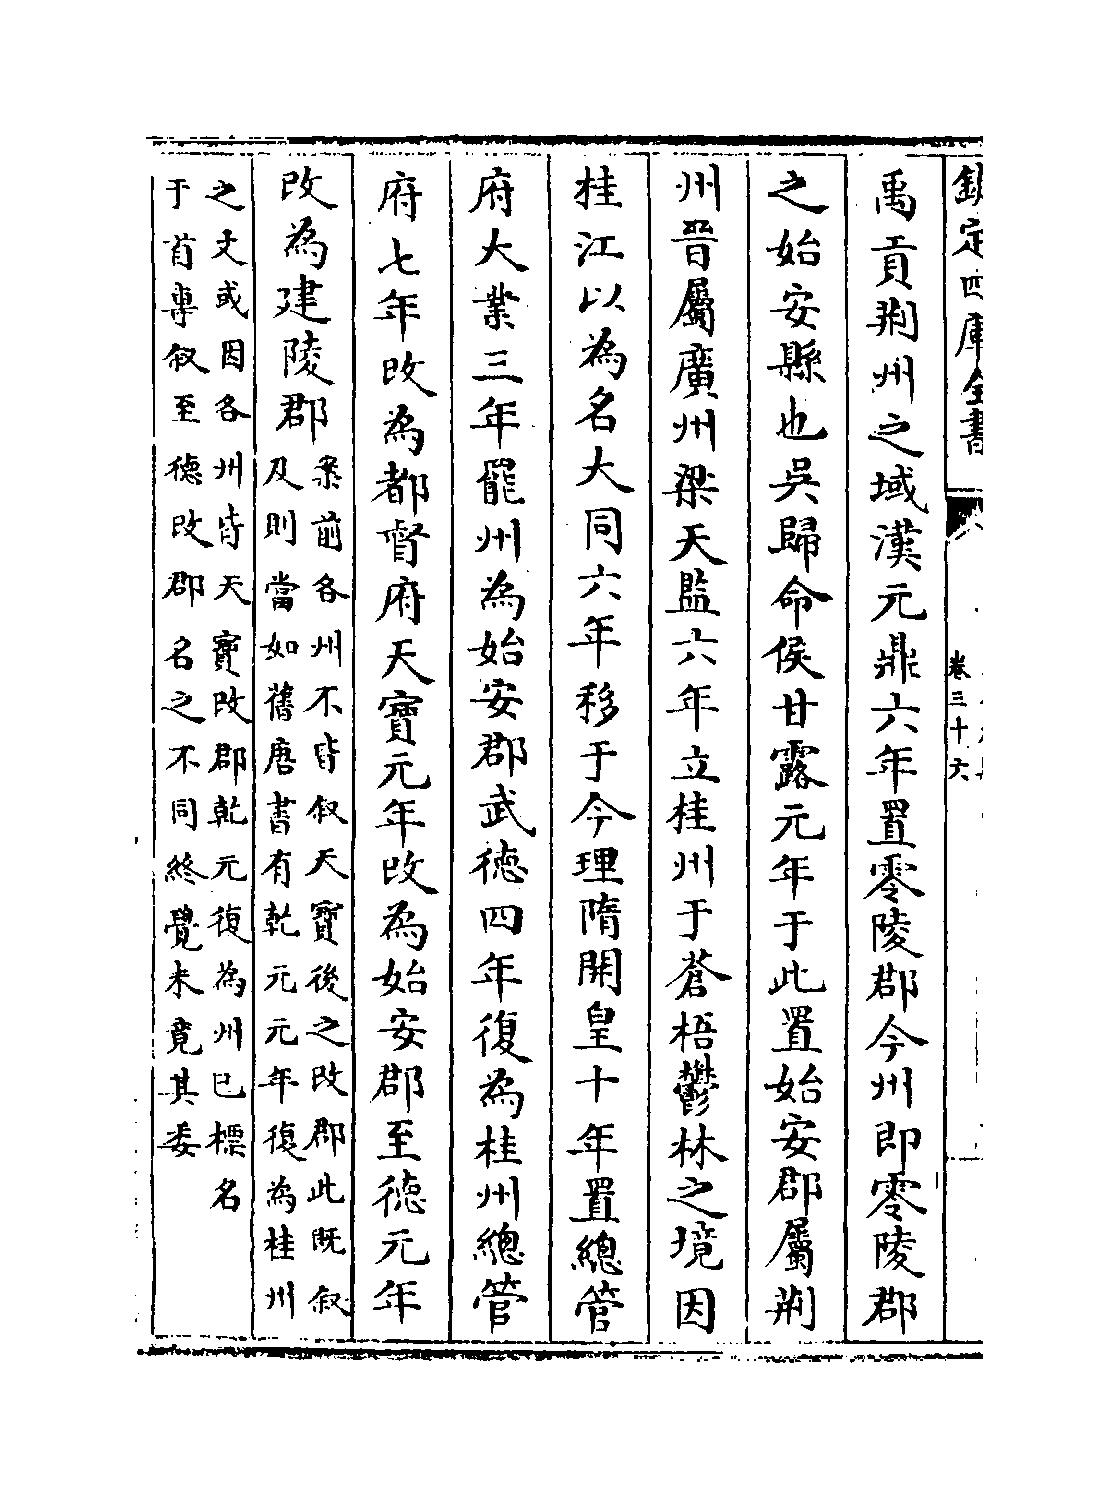 欽定四庫全書
卷三十六
禹貢荆州之域漢元鼎六年置零陵郡今州即零陵郡
之始安縣也吳歸命侯甘露元年于此置始安郡屬荆
州晉屬廣州梁天監六年立桂州于蒼梧鬱林之境因
桂江以為名大同六年移于今理隋開皇十年置總管
府大業三年罷州為始安郡武德四年復為桂州總管
府七年改為都督府天寶元年改為始安郡至德元年
改為建陵郡
案前各州不皆叙天寶後之改郡此既叙
及則當如舊唐書有乾元元年復為桂州
之文或因各州皆天寶改郡乾元復為州已標名
于首專叙至德改郡名之不同終覺未竟其委